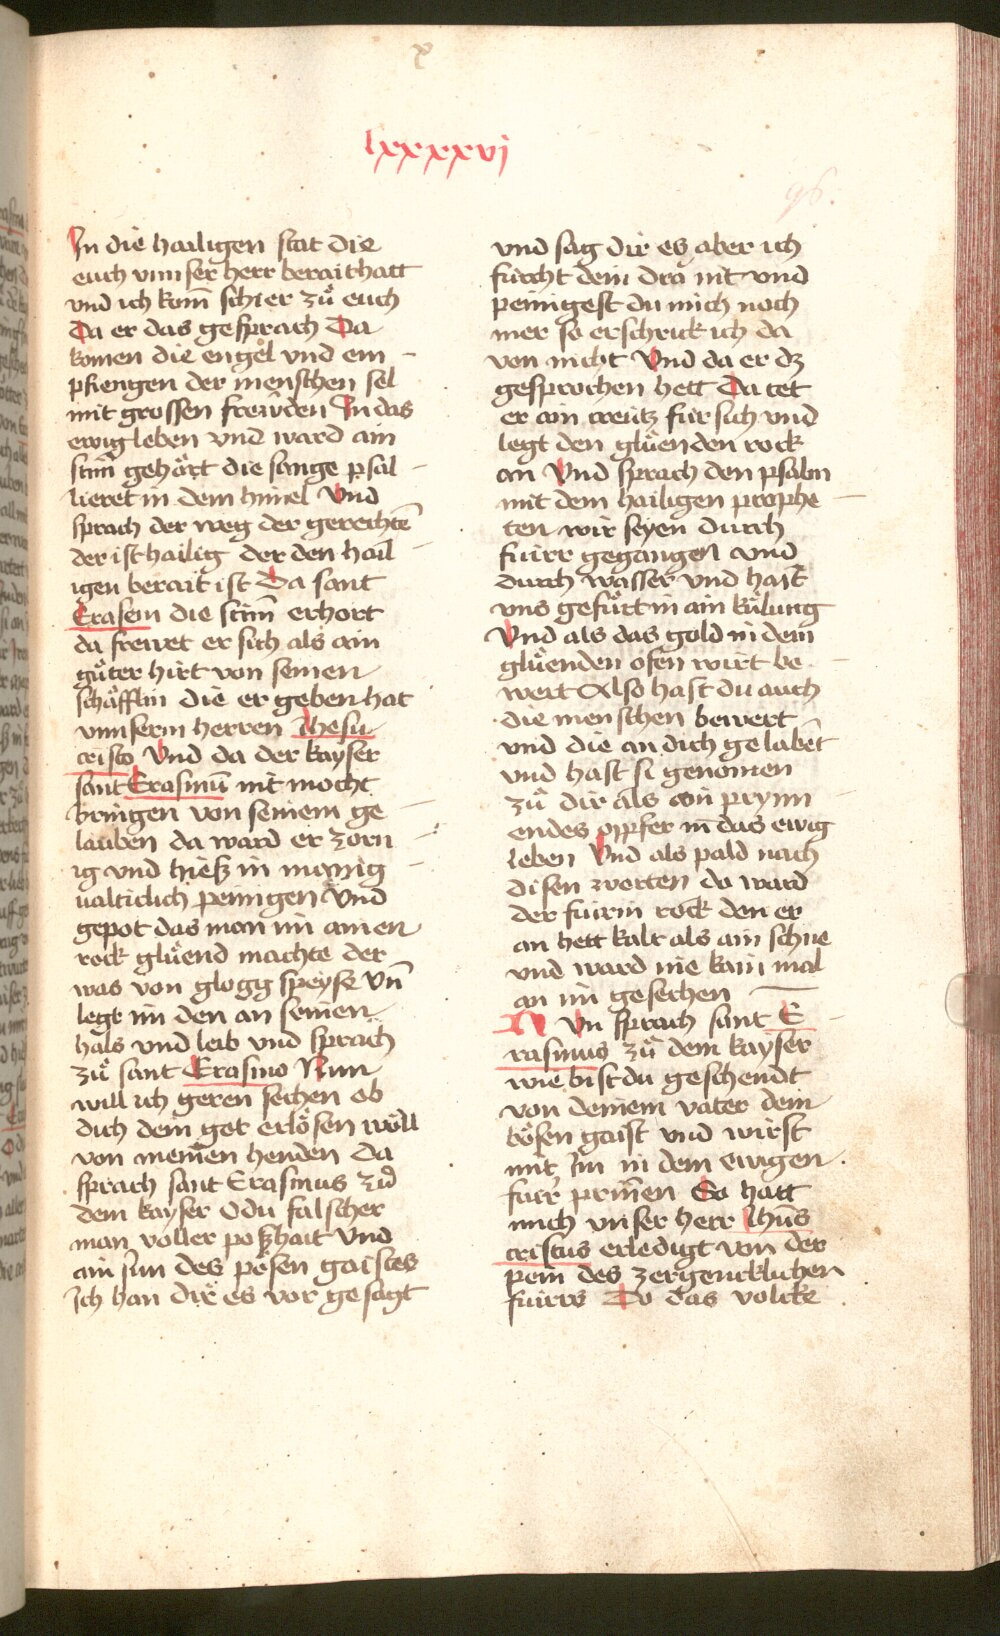 lxxxxvj
96.
In die hailigen stat die
euch vnnser herr berait hatt
vnd ich kom̄ schier zů euch
Da er das gesprach Da
komen die engel vnd em
pfiengen der menschen sel
mit grossen freẅden In das
ewig leben vnd ward ain
stim̄ gehört die sange psal
lieret in dem himel Vnd
sprach der weg der gerechtē
der ist hailig der den hail
igen berait ist Da sant
Erasem die stim̄ erhort
da frewet er sich als ain
gůter hirt von seinen
schäfflin die er geben hat
vnnserm herren Jhesu
cristo Vnd da der kayser
sant Erasmū nit mocht
bringen von seinem ge
lauben da ward er zorn
ig vnd hieß in manig
ualticlich peinigen Vnd
gepot das man im ainen
rock glüend machte der
was von glogg speyse Vn̄
legt im den an seinen
hals vnd leib vnd sprach
zů sant Erasmo Nun
will ich geren sechen ob
dich dein got erlösen wöll
von meinen henden Da
sprach sant Erasmus zů
dem kayser O du falscher
man voller poßhait Vnd
ain sun des pösen gaistes
Ich han dir es vor gesagt
vnd sag dir es aber ich
fürcht dein drö nit vnd
peinigest du mich noch
mer so erschrick ich da
von nicht Vnd da er dz
gesprochen hett Da tet
er ain creütz für sich vnd
legt den glüenden rock
an Vnd sprach den psalm
mit dem hailigen prophe
ten wir seyen durch
fuirr gegangen vnd
durch wasser vnd hast
vns gefürt in ain külung
Vnd als das gold in dem
glüenden ofen wirt be
wert Also hast du auch
die menschen bewert
vnd die an dich gelabēt
vnd hast si genomen
zů dir als ain prynn
endes opfer in das ewig
leben Vnd als pald nach
disen worten da ward
der fuirin rock den er
an hett kalt als ain schne
vnd ward nie kain mal
an im gesechen
Nun sprach sant E
rasmus zů dem kayser
wie bist du geschendt
von deinem vater dem
bösen gaist vnd wirst
mit Im in dem ewigen
fuirr prinnen So hatt
mich vnser herr Jhūs
cristus erledigt von der
pein des zergencklichen
fuirrs Do das volcke